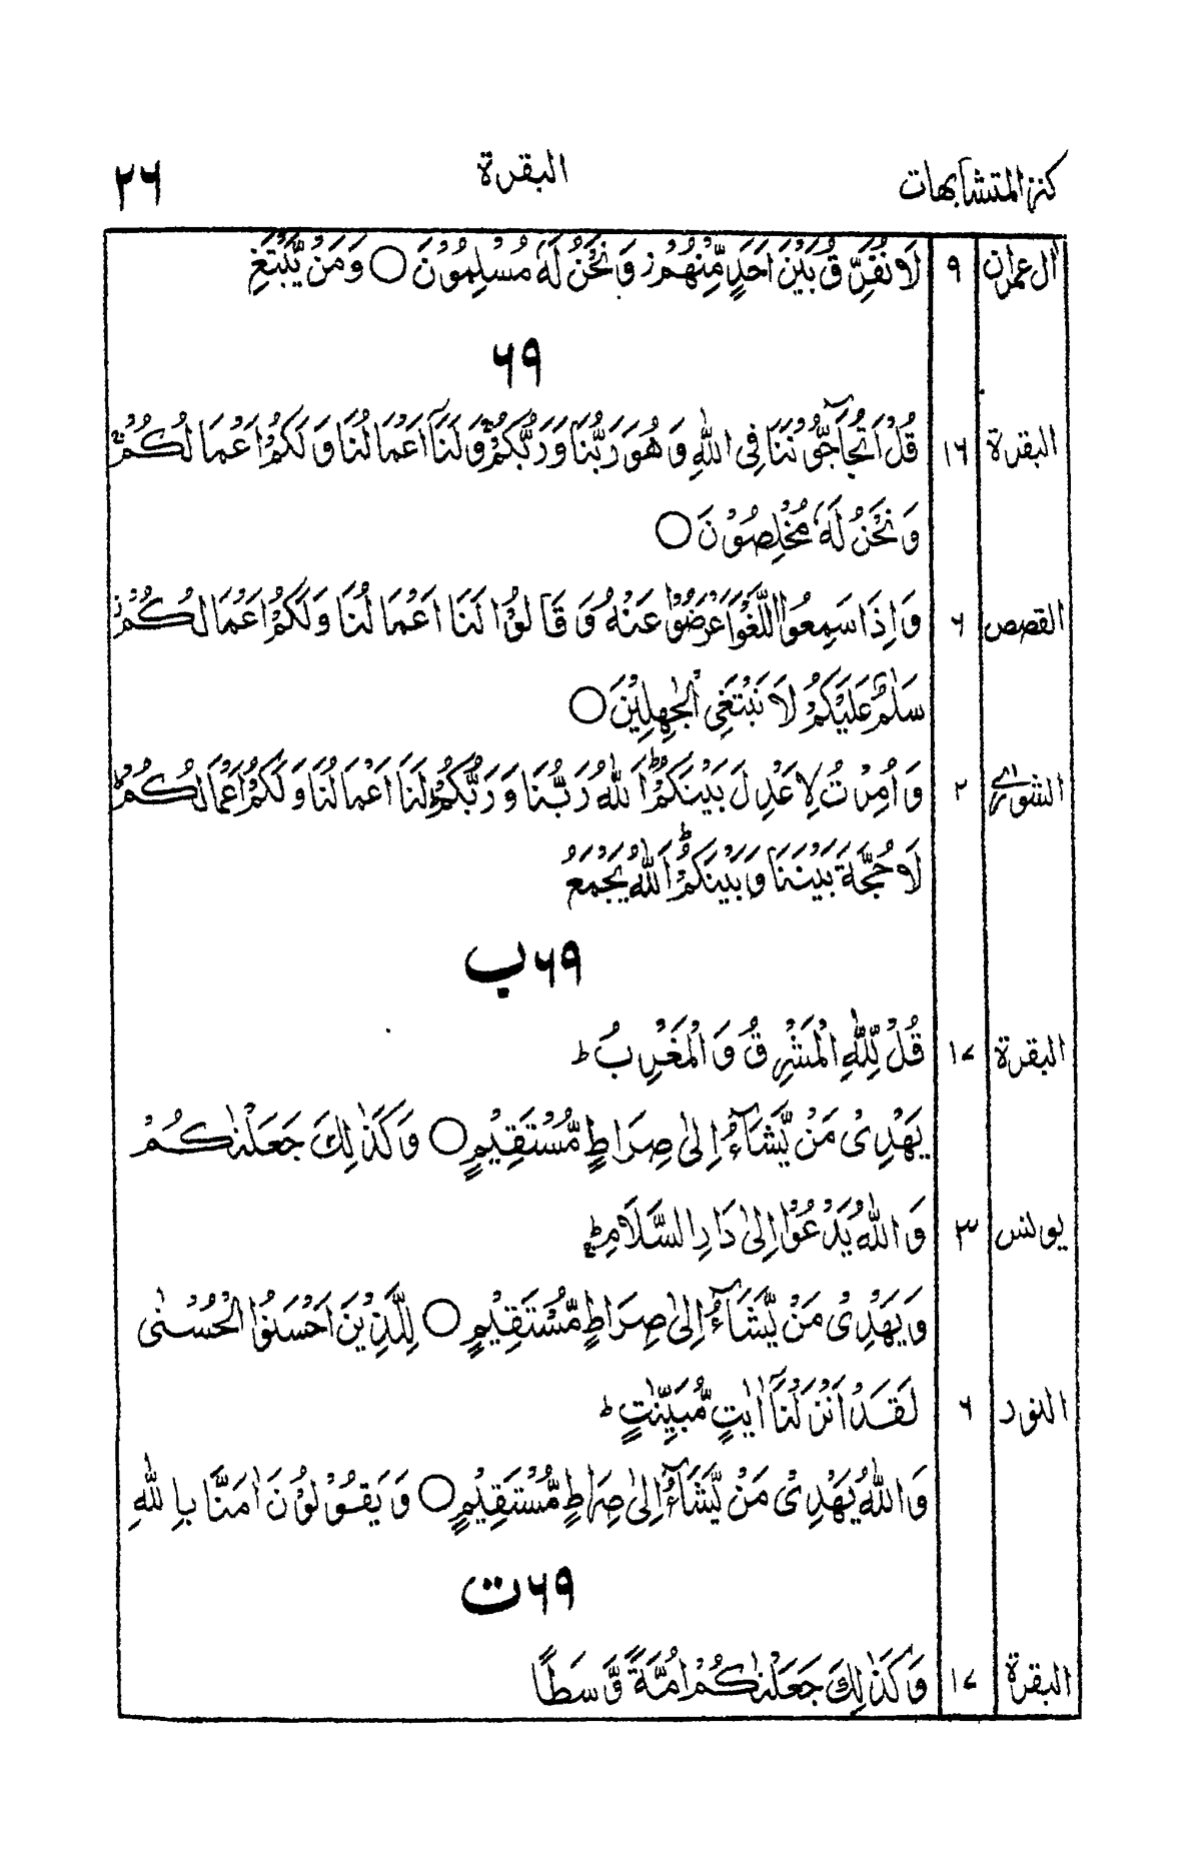 كنز المتشابهات البقرة ٢٦
اٰل عمران ٩ لَا نُفَرِّقُ بَيْنَ اَحَدٍ مِّنْهُمْ ز وَنَحْنُ لَهٗ مُسْلِمُوْنَ ○ وَمَنْ يَّبْتَغِ
٦٩
البقرة ١٦ قُلْ اَتُحَآجُّوْنَنَا فِى اللّٰهِ وَهُوَ رَبُّنَا وَرَبُّكُمْ ۚ وَلَنَآ اَعْمَالُنَا وَلَكُمْ اَعْمَالُكُمْ ۚ
وَنَحْنُ لَهٗ مُخْلِصُوْنَ ○
القصص ٦ وَاِذَا سَمِعُوا اللَّغْوَ اَعْرَضُوْا عَنْهُ وَقَالُوْا لَنَا اَعْمَالُنَا وَلَكُمْ اَعْمَالُكُمْ ز
سَلٰمٌ عَلَيْكُمْ لَا نَبْتَغِى الْجٰهِلِيْنَ ○
الشورٰى ٢ وَاُمِرْتُ لِاَعْدِلَ بَيْنَكُمْ ؕ اَللّٰهُ رَبُّنَا وَرَبُّكُمْ ؕ لَنَا اَعْمَالُنَا وَلَكُمْ اَعْمَالُكُمْ ؕ
لَا حُجَّةَ بَيْنَنَا وَبَيْنَكُمْ ؕ اَللّٰهُ يَجْمَعُ
٦٩ب
البقرة ١٧ قُلْ لِّلّٰهِ الْمَشْرِقُ وَالْمَغْرِبُ ؕ
يَهْدِىْ مَنْ يَّشَآءُ اِلٰى صِرَاطٍ مُّسْتَقِيْمٍ ○ وَكَذٰلِكَ جَعَلْنٰكُمْ
يونس ٣ وَاللّٰهُ يَدْعُوْٓا اِلٰى دَارِ السَّلَامِ ؕ
وَيَهْدِىْ مَنْ يَّشَآءُ اِلٰى صِرَاطٍ مُّسْتَقِيْمٍ ○ لِلَّذِيْنَ اَحْسَنُوا الْحُسْنٰى
النور ٦ لَقَدْ اَنْزَلْنَآ اٰيٰتٍ مُّبَيِّنٰتٍ ؕ
وَاللّٰهُ يَهْدِىْ مَنْ يَّشَآءُ اِلٰى صِرَاطٍ مُّسْتَقِيْمٍ ○ وَيَقُوْلُوْنَ اٰمَنَّا بِاللّٰهِ
٦٩ت
البقرة ١٧ وَكَذٰلِكَ جَعَلْنٰكُمْ اُمَّةً وَّسَطًا